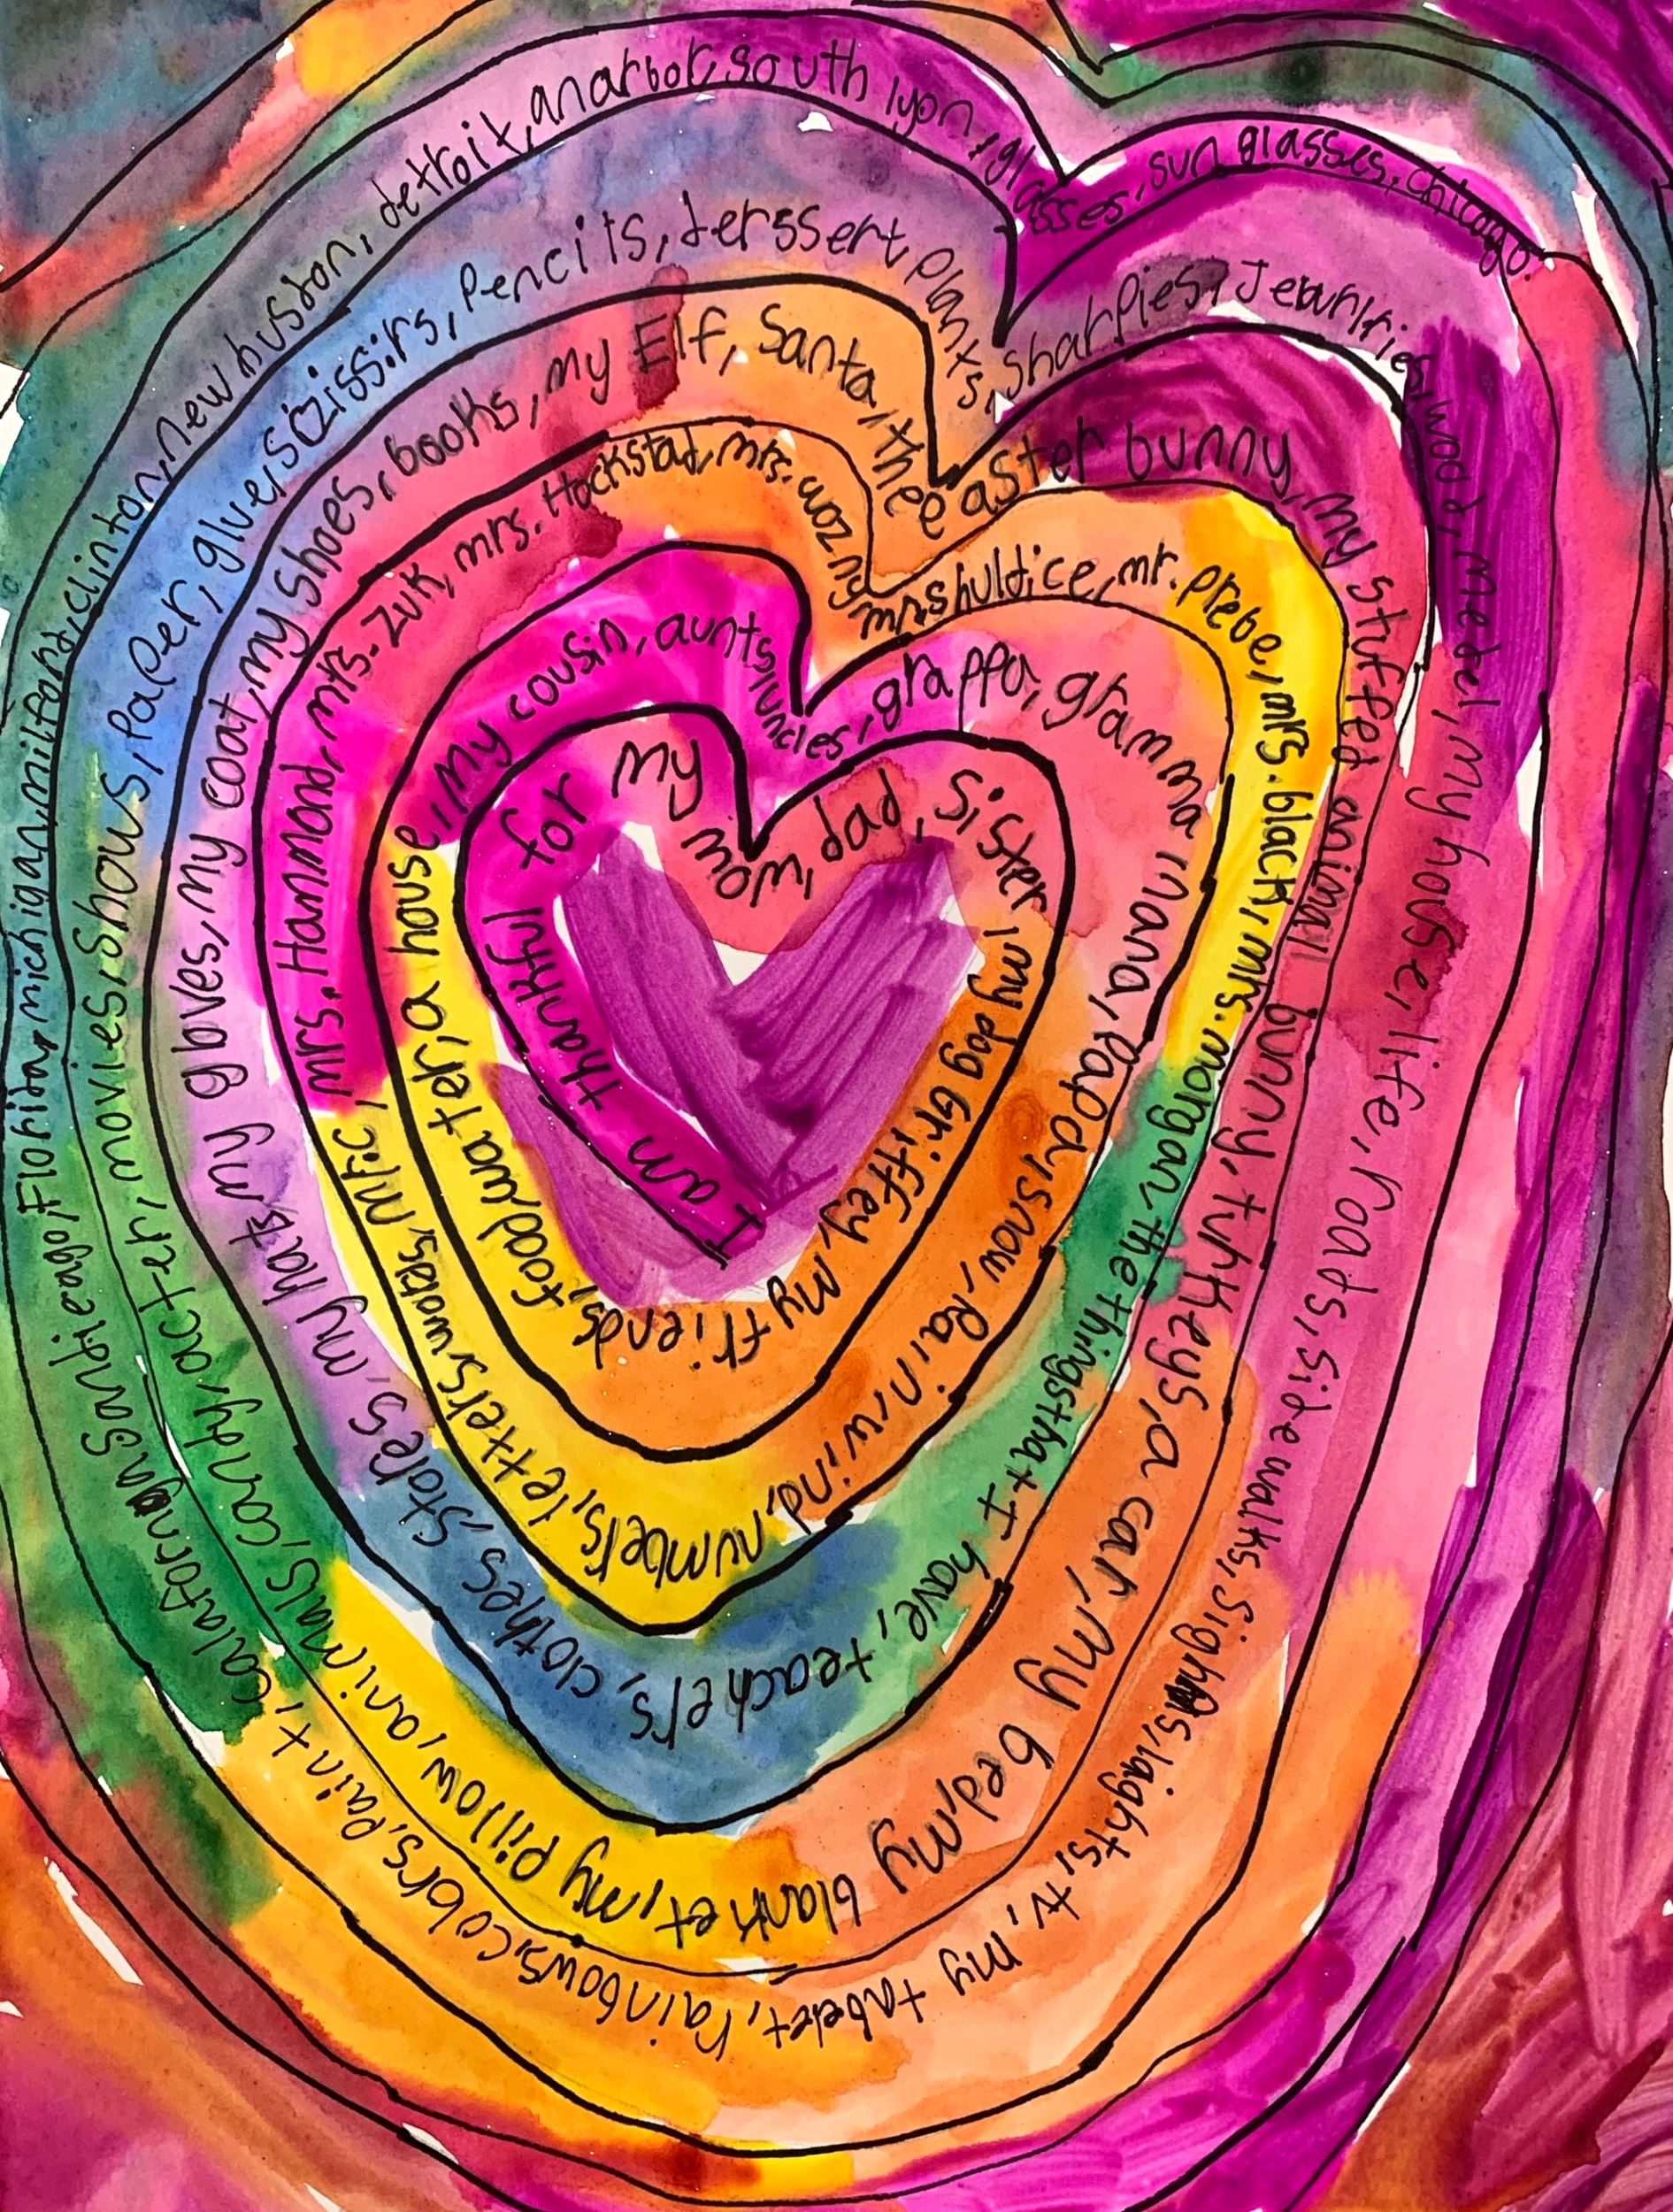 I am thankful for My mom, dad, sister, my dog Griffey, My friends, food, water, a house, my cousin, aunts, uncles, grappa, gramma nana, Papa, snow, Rain, wind, numbers, letters, words, mrs. Hammond, mrs. Zuk, mrs. Hockstad, mrs. wozny,
mrs shuldice, mr. prebe, mrs. black, mrs. morgan, the things that I have, teachers, clothes, stores, my hats, my gloves, my coat, my shoes, books, my Elf, Santa, the
easter bunny, my stuffed animal bunny, turkeys, a car, my bed, my blanket, my pillow, animals, candy, acter, movies, shows, paper, glue, scizissirs, Pencils, derssert plants,
sharpies, wood, medel, my house, life, roads, sidewalks, laights, tv, my tabelet, rainbows, colors, Paint, Sandieago, Florida, michigan, milford, clinton, new huston, detroit, anarbor, south lyon, glasses, sun glasses, chicago.